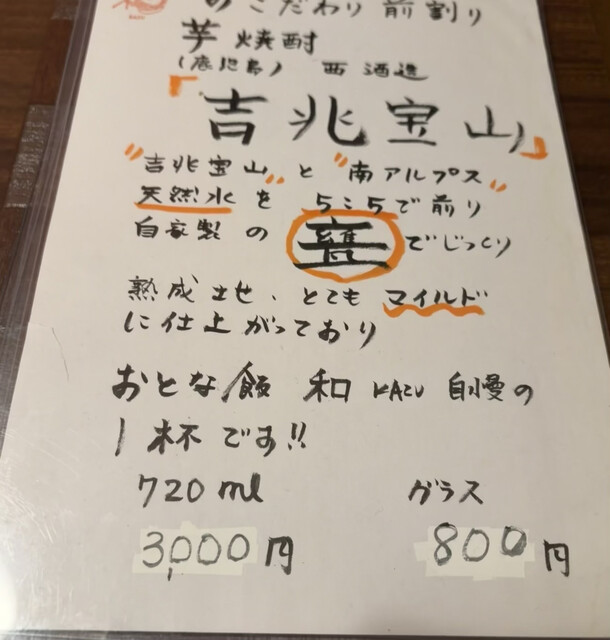 のこだわり前割り
芋焼酎
(鹿児島) 西酒造
「吉兆宝山」
"吉兆宝山"と"南アルプス"
天然水を 5:5で前り
自家製の 甕 でじっくり
熟成させ、とてもマイルド
に仕上がっており
おとな飯 和 KAZU 自慢の
1杯です!!
720ml グラス
3,000円 800円